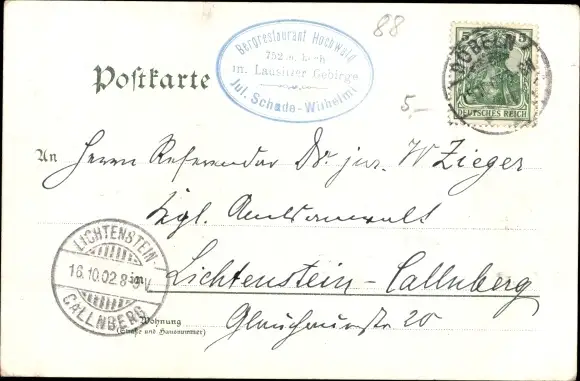 88
Bergrestaurant Hochwald
752 m hoch
im Lausitzer Gebirge
Jul. Schada-Wilhelmi
Postkarte
5,-
DÖBELN
DEUTSCHES REICH
An Herrn Referendar Dr. jur. W Zieger
Kgl. Amtsanwalt
in Lichtenstein-Callnberg
Glauchauerstr 20
LICHTENSTEIN-
16.10.02.8-9V.
CALLNBERG
Wohnung
(Straße und Hausnummer)